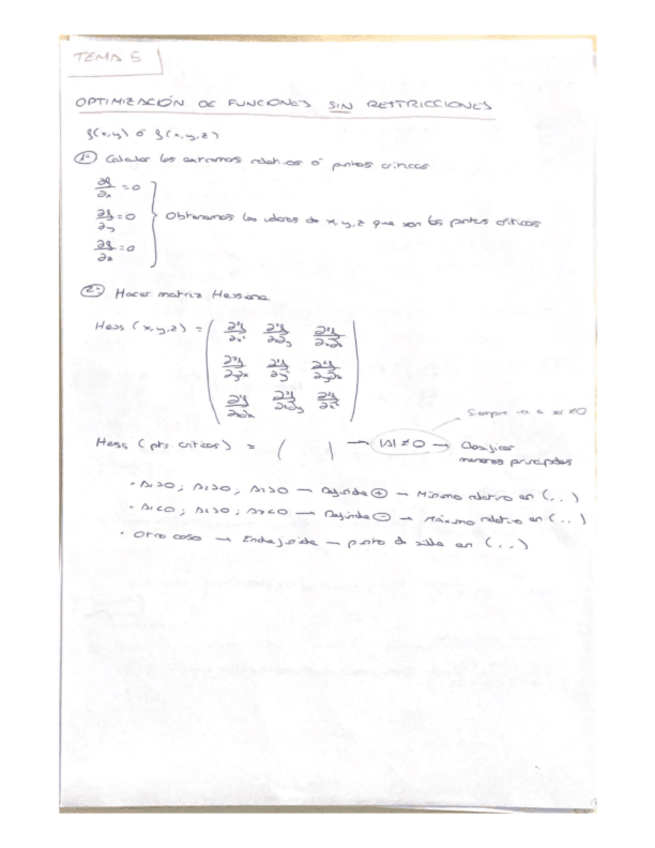 TEMA 5
OPTIMIZACIÓN DE FUNCIONES SIN RESTRICCIONES
f(x,y) ó f(x,y,z)
1º Calcular los extremos relativos ó puntos críticos
∂f/∂x = 0
∂f/∂y = 0
∂f/∂z = 0
Obtenemos los valores de x,y,z que son los puntos críticos
2º Hacer matriz Hessiana
Hess (x,y,z) =
∂²f/∂x² ∂²f/∂x∂y ∂²f/∂x∂z
∂²f/∂y∂x ∂²f/∂y² ∂²f/∂y∂z
∂²f/∂z∂x ∂²f/∂z∂y ∂²f/∂z²
Siempre va a ser ≠0
Hess (pts críticos) = ( ) → |A| ≠ 0 → Clasificar
menores principales
· Δ1>0; Δ1>0; Δ1>0 → Definida ⊕ → Mínimo relativo en (..)
· Δ1<0; Δ1>0; Δ3<0 → Definida ⊖ → Máximo relativo en (..)
· Otro caso → Indefinida → punto de silla en (..)